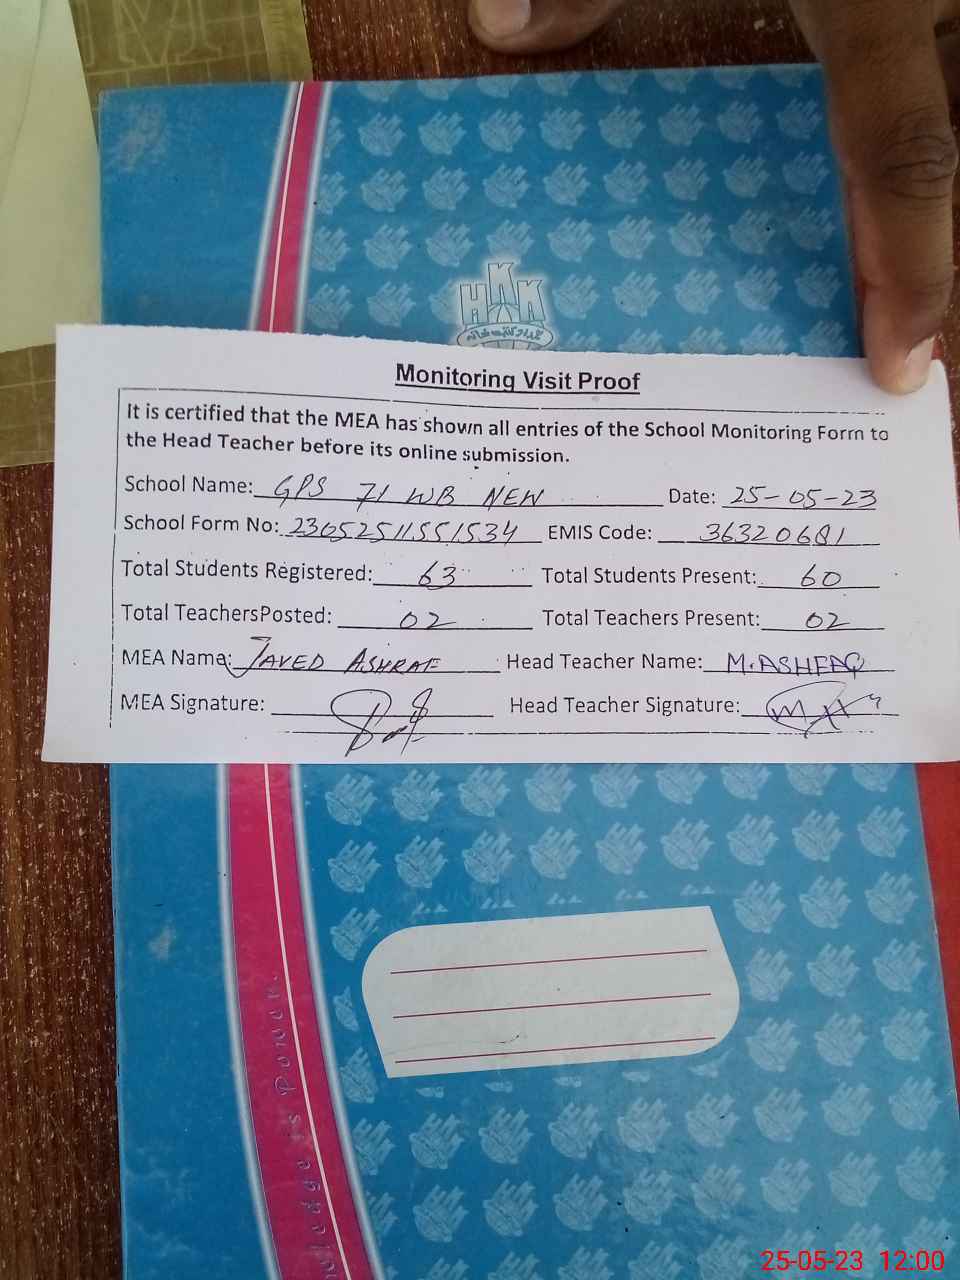 HKK
Monitoring Visit Proof
It is certified that the MEA has shown all entries of the School Monitoring Form to
the Head Teacher before its online submission.
School Name: GPS 71 WB NEW Date: 25-05-23
School Form No: 23052511551534 EMIS Code: 36320681
Total Students Registered: 63 Total Students Present: 60
Total TeachersPosted: 02 Total Teachers Present: 02
MEA Name: JAVED ASHRAF Head Teacher Name: M.ASHFAQ
MEA Signature: Head Teacher Signature:
wledge is Power.
25-05-23 12:00